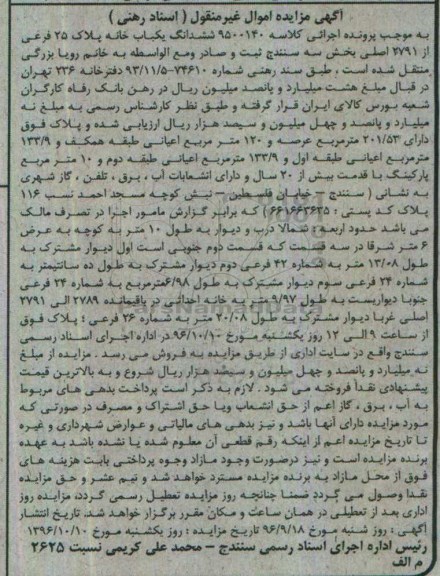 آگهی مزایده اموال غیرمنقول ( اسناد رهنی )
به موجب پرونده اجرائی کلاسه ۹۵۰۰۱۴۰ ششدانگ یکباب خانه پلاک ۲۵ فرعی
از ۲۷۹۱ اصلی بخش سه سنندج ثبت و صادر ومع الواسطه به خانم رویا بزرگی
منتقل شده است ، طبق سند رهنی شماره ۷۴۶۱۰-۹۳/۱۱/۵ دفترخانه ۲۳۶ تهران
در قبال مبلغ هشت میلیارد و پانصد میلیون ریال در رهن بانک رفاه کارگران
شعبه بورس کالای ایران قرار گرفته و طبق نظر کارشناس رسمی به مبلغ نه
میلیارد و پانصد و چهل میلیون و سیصد هزار ریال ارزیابی شده و پلاک فوق
دارای ۲۰۱/۵۳ مترمربع عرصه و ۱۲۰ متر مربع اعیانی طبقه همکف و ۱۳۳/۹
مترمربع اعیانی طبقه اول و ۱۳۳/۹ مترمربع اعیانی طبقه دوم و ۱۰ متر مربع
پارکینگ با قدمت بیش از ۲۰ سال و دارای انشعابات آب ، برق ، تلفن ، گاز شهری
به نشانی ( سنندج – خیابان فلسطین – نبش کوچه مسجد احمد نسب ۱۱۶
پلاک کد پستی : ۶۶۱۶۶۳۶۳۵ ) که برابر گزارش مامور اجرا در تصرف مالک
می باشد حدود اربعه : شمالا درب و دیوار به طول ۱۰ متر به کوچه به عرض
۶ متر شرقا در سه قسمت که قسمت دوم جنوبی است اول دیوار مشترک به
طول ۱۳/۰۸ متر به شماره ۴۲ فرعی دوم دیوار مشترک به طول ده سانتیمتر به
شماره ۲۴ فرعی سوم دیوار مشترک به طول ۶/۹۸مترمربع به شماره ۲۴ فرعی
جنوبا دیواریست به طول ۹/۹۷ متر به خانه احداثی در باقیمانده ۲۷۸۹ الی ۲۷۹۱
اصلی غربا دیوار مشترک به طول ۲۰/۰۸ متر به شماره ۲۶ فرعی ؛ پلاک فوق
از ساعت ۹ الی ۱۲ روز یکشنبه مورخ ۹۶/۱۰/۱۰ در اداره اجرای اسناد رسمی
سنندج واقع در سایت اداری از طریق مزایده به فروش می رسد . مزایده از مبلغ
نه میلیارد و پانصد و چهل میلیون و سیصد هزار ریال شروع و به بالاترین قیمت
پیشنهادی نقدا فروخته می شود . لازم به ذکر است پرداخت بدهی های مربوط
به آب ، برق ، گاز اعم از حق انشعاب ویا حق اشتراک و مصرف در صورتی که
مورد مزایده دارای آنها باشد و نیز بدهی های مالیاتی و عوارض شهرداری و غیره
تا تاریخ مزایده اعم از اینکه رقم قطعی آن معلوم شده یا نشده باشد به عهده
برنده مزایده است و نیز درصورت وجود مازاد وجوه پرداختی بابت هزینه های
فوق از محل مازاد به برنده مزایده مسترد خواهد شد و نیم عشر و حق مزایده
نقدا وصول می گردد ضمنا چنانچه روز مزایده تعطیل رسمی گردد، مزایده روز
اداری بعد از تعطیلی در همان ساعت و مکان مقرر برگزار خواهد شد. تاریخ انتشار
آگهی : روز شنبه مورخ ۹۶/۹/۱۸ تاریخ مزایده : روز یکشنبه مورخ ۱۳۹۶/۱۰/۱۰
رئیس اداره اجرای اسناد رسمی سنندج – محمد علی کریمی نسبت ۲۶۲۵
م الف